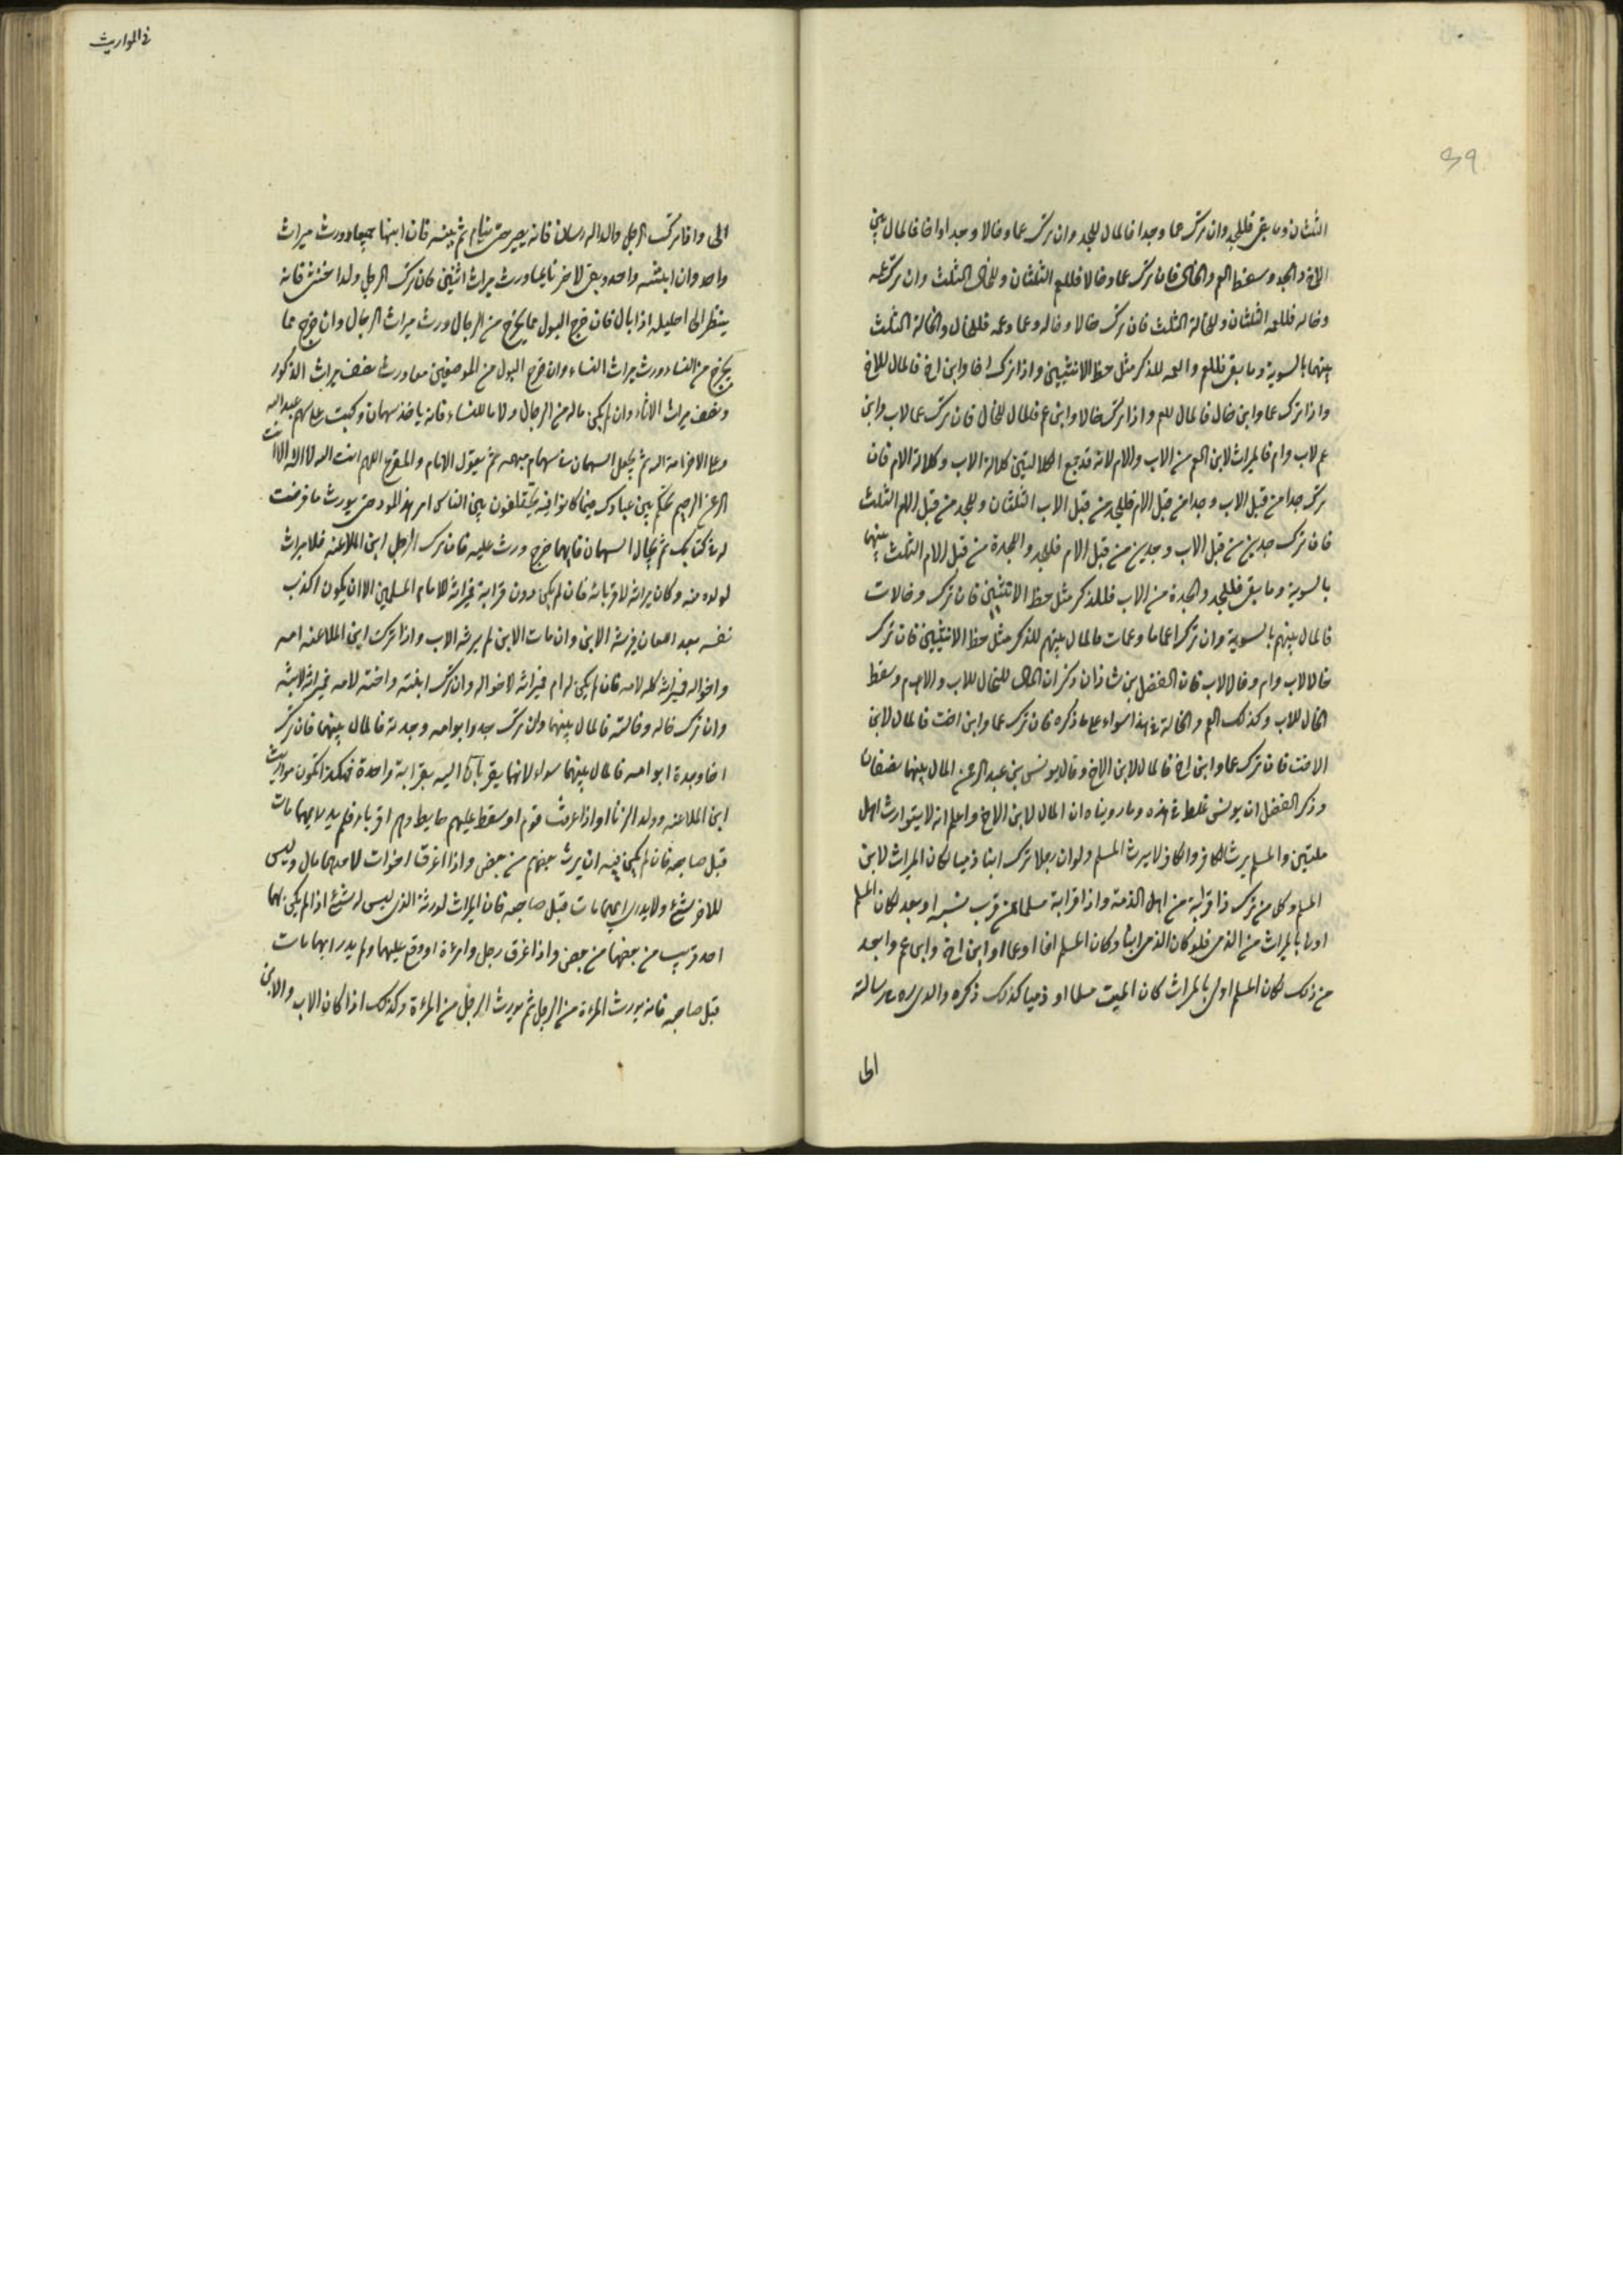 الثلثان وما بقي فللجد وان ترك عما وجدا فالمال للجد وان ترك عما وخالا وجدا واخا فالمال بين
الاخ والجد وسقط العم والخال فان ترك عما وخالا فللعم الثلثان وللخال الثلث وان ترك عمة
وخالة فللعمة الثلثان وللخالة الثلث فان ترك خالا وخالة وعما وعمة فللخال والخالة الثلث
بينهما بالسوية وما بقي فللعم والعمة للذكر مثل حظ الانثيين واذا ترك اخا وابن اخ فالمال للاخ
واذا ترك عما وابن خال فالمال للعم واذا ترك خالا وابن عم فالمال للخال فان ترك عما لاب وابن
عم لاب وام فالميراث لابن العم من الاب والام لانه قد جمع الكلالتين كلالة الاب وكلالة الام فان
ترك جدا من قبل الاب وجدا من قبل الام فللجد من قبل الاب الثلثان وللجد من قبل الام الثلث
فان ترك جدين من قبل الاب وجدين من قبل الام فللجد والجدة من قبل الام الثلث بينهما
بالسوية وما بقي فللجد والجدة من الاب فللذكر مثل حظ الانثيين فان ترك وخالات
فالمال بينهم بالسوية وان ترك اعماما وعمات فالمال بينهم للذكر مثل حظ الانثيين فان ترك
خالا لاب وام وخالا لاب فان الفضل بن شاذان ذكر ان المال للخال للاب والام وسقط
الخال للاب وكذلك العم والخالة في هذا سواء على ما ذكره فان ترك عما وابن اخت فالمال لابن
الاخت فان ترك عما وابن اخ فالمال لابن الاخ وقال يونس بن عبد الرحمن المال بينهما نصفان
وذكر الفضل ان يونس غلط في هذه وما رويناه ان المال لابن الاخ واعلم انه لا يتوارث اهل
ملتين والمسلم يرث الكافر والكافر لا يرث المسلم ولو ان رجلا ترك ابنا ذميا لكان الميراث لابن
المسلم وكل من ترك ذا قرابة من اهل الذمة واذا قرابة مسلما ممن قرب نسبه او بعد لكان المسلم
اولى بالميراث من الذمي فلو كان الذمي ابنا وكان المسلم اخا او عما او ابن اخ وابن عم وابعد
من ذلك لكان المسلم اولى بالميراث كان الميت مسلما او ذميا كذلك ذكره والدي ره في رسالته
الى
في المواريث
الى واذا ترك الرجل ولدا له راسان فانه يصبر حتى ينام ثم ينبه فان انتبها جميعا ورث ميراث
واحد وان انتبه واحد وبقي الاخر نايما ورث ميراث اثنين فان ترك الرجل ولدا خنثى فانه
ينظر الى احليله اذا بال فان خرج البول مما يخرج من الرجال ورث ميراث الرجال وان خرج مما
يخرج من النساء ورث ميراث النساء وان خرج البول من الموضعين معا ورث نصف ميراث الذكور
ونصف ميراث الاناث وان لم يكن ما له من الرجال ولا ما للنساء فانه ياخذ سهمان وكتبت على سهم عبد الله
وعلى الاخر امة الله ثم يجعل السهمان في سهام مبهمه ثم يقول الامام والمقرع اللهم انت الله لا اله الا انت
الرحمن الرحيم تحكم بين عبادك فيما كانوا فيه يختلفون بين الناس امر هذا المولود حتى يورث ما فرضت
له في كتابك ثم يجال السهمان فايهما خرج ورث عليه فان ترك الرجل ابن الملاعنة فلا ميراث
لولده منه وكان ميراثه لاقربائه فان لم يكن دون قرابة فميراثه لامام المسلمين الا ان يكون اكذب
نفسه بعد اللعان فيرثه الابن وان مات الابن لم يرثه الاب واذا ترك ابن الملاعنة امه
واخواله فميراثه كله لامه فان لم يكن له ام فميراثه لاخواله وان ترك ابنته واخته لامه فميراثه لابنته
وان ترك خاله وخالته فالمال بينهما وان ترك جده ابو امه وجدته فالمال بينهما فان ترك
اخا وجدة ابو امه فالمال بينهما سواء لانهما يتقربان اليه بقرابة واحدة فهكذا تكون مواريث
ابن الملاعنة وولد الزنا واذا غرقت قوم او سقط عليهم حايط وهم اقرباء فلم يدر ايهما مات
قبل صاحبه فان لم يكن فيه ان يرث بعضهم من بعض واذا اغرق اخوات لاحدهما مال وليس
للاخر شيء ولا يدري ايهما مات قبل صاحبه فان الميراث لورثة الذي ليس له شيء اذا لم يكن لهما
احد قريب من بعضهما من بعض واذا غرق رجل وامرءة او وقع عليهما ولم يدر ايهما مات
قبل صاحبه فانه يورث المرءة من الرجل ثم يورث الرجل من المرءة وكذلك اذا كان الاب والابن